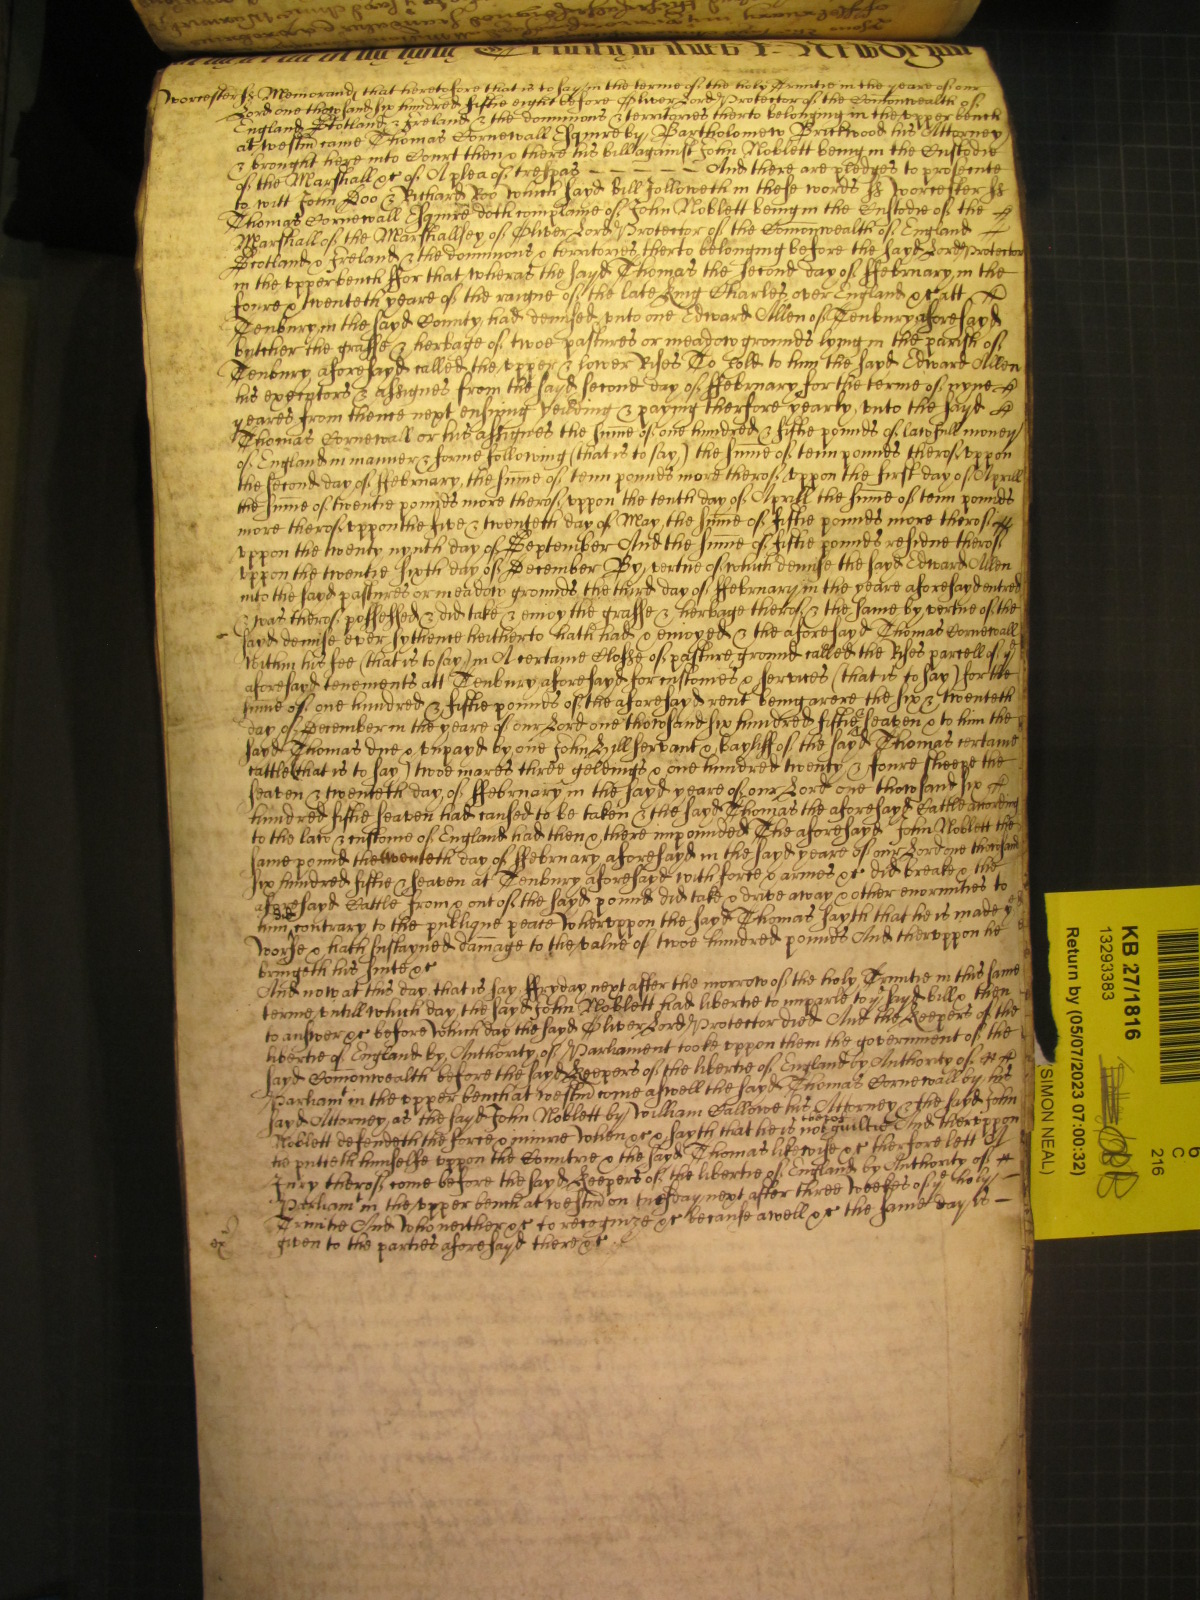 Worcester ss Memorand that heretofore that is to say in the terme of the holy Trinitie in the yeare of our
Lord one thowsand six hundred fiftie eight before Oliver Lord Protector of the Comonwealth of
England Scotland & Ireland & the dominions & territories therto belonging in the upper bench
at Westm came Thomas Cornewall Esquire by Bartholomew Brickwood his Attorney
& brought here into Court then & there his bill against John Noblett being in the Custodie
of the Marshall &c of A plea of trespas - - - - - - And there are pledges to prosecute
to witt John Doo & Richard Roo which sayd bill followeth in these words ss Worcester ss
Thomas Cornewall Esquire doth complaine of John Noblett being in the Custodie of the
Marshall of the Marshallsey of Oliver Lord Protector of the Comonwealth of England
Scotland & Ireland & the dominions & territories therto belonging before the sayd Lord Protector
in the upper bench ffor that wheras the sayd Thomas the second day of ffebruary in the
foure & twenteth yeare of the raigne of the late King Charles over England &c att
Tenbury in the sayd County had demised unto one Edward Allen of Tenbury aforesayd
butcher the grasse & herbage of twoe pastures or meadow grounds lying in the parish of
Tenbury aforesayd called the upper & lower Rises To hold to him the sayd Edward Allen
his executors & assignes from the sayd second day of ffebruary for the terme of nyne
yeares from thence next ensuing yeilding & paying therfore yearly unto the sayd
Thomas Cornewall or his assignes the sume of one hundred & fiftie pounds of lawfull money
of England in manner & forme following (that is to say) the sume of tenn pounds therof uppon
the second day of ffebruary, the sume of tenn pounds more therof uppon the first day of Aprill
the sume of twentie pounds more therof uppon the tenth day of Aprill the sume of tenn pounds
more therof uppon the five & twenteth day of May, the sume of fiftie pounds more therof
uppon the twenty nynth day of September And the sume of fiftie pounds residue therof
uppon the twentie sixth day of December By vertue of which demise the sayd Edward Allen
into the sayd pastures or meadow grounds the third day of ffebruary in the yeare aforesayd entred
& was therof possessed & did take & enioy the grasse & herbage therof & the same by vertue of the
sayd demise ever sythence heitherto hath had & enioyed & the aforesayd Thomas Cornewall
within his fee (that is to say) in A certaine Closse of pasture ground called the Rises parcell of ye
aforesayd tenements att Tenbury aforesayd for customes & services (that is to say) for the
sume of one hundred & fiftie pounds of the aforesayd rent being arere the six & twenteth
day of December in the yeare of our Lord one thowsand six hundred fiftie seaven & to him the
sayd Thomas due & unpayd by one John Bill servant & bayliff of the sayd Thomas certaine
cattle (that is to say) twoe mares three geldings & one hundred twenty & foure sheepe the
seaven & twenteth day of ffebruary in the sayd yeare of our Lord one thowsand six
hundred fiftie seaven had caused to be taken & the sayd Thomas the aforesayd Cattle according
to the law & custome of England had then & there impounded The aforesayd John Noblett the
same pound the twenteth day of ffebruary aforesayd in the sayd yeare of our Lord one thowsand
six hundred fiftie & seaven at Tenbury aforesayd with force & armes &c did breake & the
aforesayd Cattle from & out of the sayd pound did take & drive away & other enormities to
him contrary to the publique peace Wheruppon the sayd Thomas sayth that he is made ye
worse & hath sustayned damage to the value of twoe hundred pounds And theruppon he
bringeth his suite &c
And now at this day that is say ffryday next after the morrow of the holy Trinitie in this same
terme, untill which day the sayd John Noblett had libertie to imparle to ye sayd bill & then
to answer &c before which day the sayd Oliver Lord Protector died And the Keepers of the
libertie of England by Authority of Parliament tooke uppon them the government of the
sayd Comonwealth before the sayd Keepers of the libertie of England by Authority of
Parliamt in the upper bench at westm come aswell the sayd Thomas Cornewall by his
sayd Attorney, as the sayd John Noblett by William Callowe his Attorney & the sayd John
Noblett defendeth the force & iniurie when &c & sayth that he is not guiltie And theruppon
he putteth himselfe uppon the Countrie & the sayd Thomas likewise &c therfore lett A
Iury therof come before the sayd Keepers of the libertie of England by Authority of
Parliamt in the upper bench at westm on tuesday next after three weekes of ye holy
Trinitie And who neither &c to recognize &c because aswell &c the same day is
given to the parties aforesayd there &c
KB 27/1816
13293383
Return by (05/07/2023 07:00:32)
(SIMON NEAL)
6
C
216